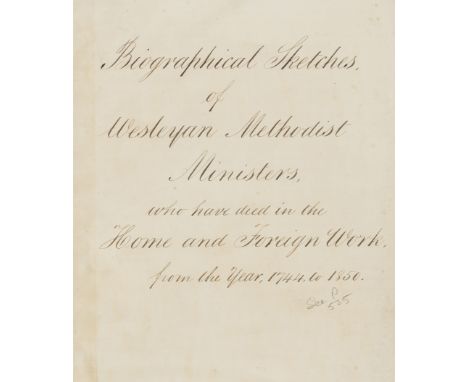 Biographical Sketches.
of
Wesleyan Methodist
Ministers,
who have died in the
Home and Foreign Work.
from the Year, 1744, to 1850.
See P
535